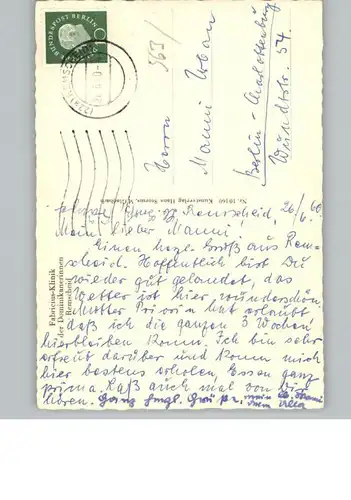 DEUTSCHE BUNDESPOST BERLIN
10
363/
Herrn
Manni Urban
Berlin-Charlottenburg
Wundtstr. 54
Nr. 10160 Kunstverlag Hans Storms, M.Gladbach
Fabricius-Klinik
der Dominikanerinnen
Remscheid
Remscheid, 26/6.60
Mein lieber Manni!
Einen herzl. Gruß aus Rem-
scheid. Hoffentlich bist Du
wieder gut gelandet, das
Wetter ist hier wunderschön.
Mutter Priorin hat erlaubt
daß ich die ganzen 3 Wochen
hierbleiben kann. Ich bin sehr
erfreut darüber und kann mich
hier bestens erholen, Essen ganz
prima. Laß auch mal von Dir
hören. Ganz herzl. Grüße, mein lb. Manni
Dein